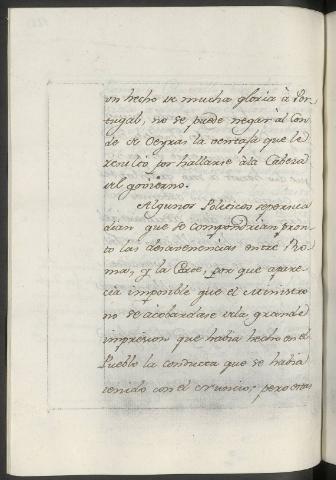 un hecho de mucha gloria à Por-
tugal, no se puede negar al Con-
de de Oeyras la ventaja que le
resultò por hallarse à la Cabeza
del govierno.
Algunos Politicos se persua-
dian que se compondrian pron-
to las desavenencias entre Ro-
ma, y la Corte, por que apare-
cia imposible que el Ministro
no se acobardase de la grande
impresion que habia hecho en el
Pueblo la conducta que se habia
tenido con el Nuncio; pero estas